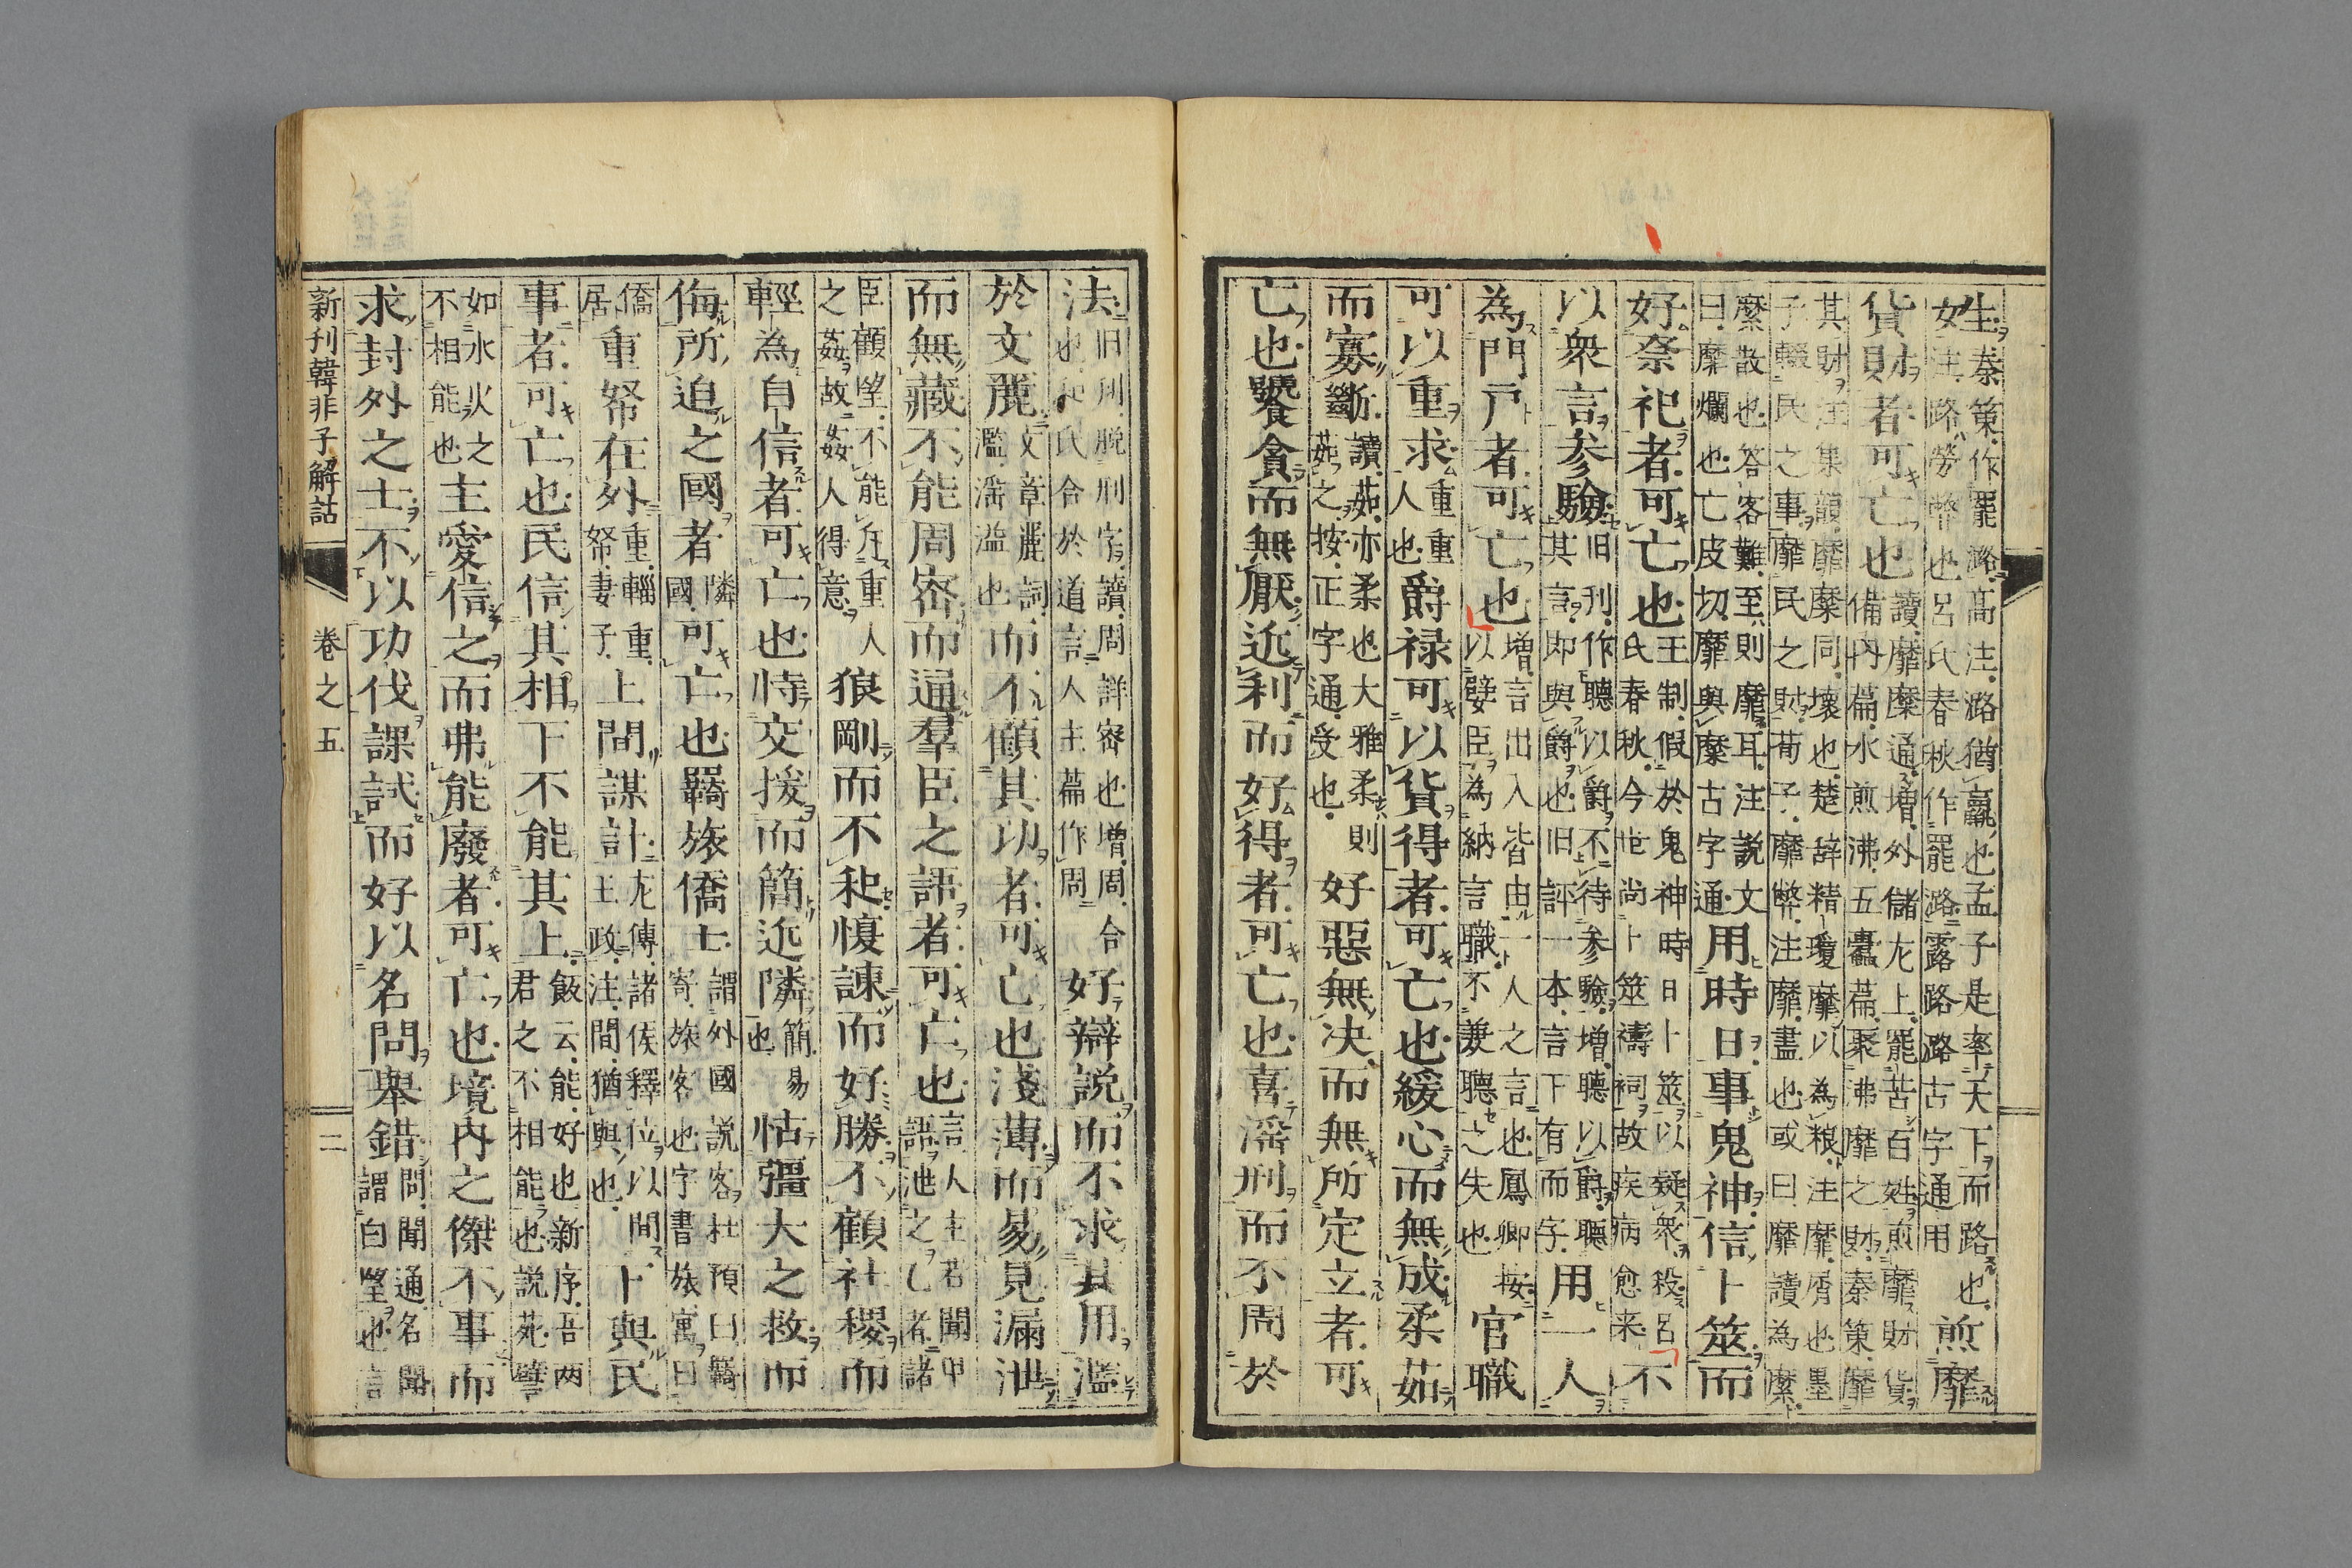 生秦策作罷潞高注潞猶羸也孟子是率天下而路也煎靡
女注路勞幣也呂氏春秋作罷潞露路潞古字通用
貨財者可亡也讀靡糜通増外儲左上罷苦百姓煎靡財貨
備內篇水煎沸五蠹篇聚沸靡之財秦策靡
其財注集韻靡糜同壞也楚辞精瓊靡以為粮注靡屑也墨
子輟民之事靡民之財荀子靡幣注靡盡也或曰靡讀為糜
縻散也答客難至則靡耳注説文用時日事鬼神信卜筮而
曰靡爛也亡皮切靡與糜古字通
好祭祀者可亡也王制假於鬼神時日卜筮以疑衆殺呂不
氏春秋今世尚卜筮禱祠故疾病愈来
以衆言参驗旧刋作聽以爵不待参驗増聽以爵聽用一人
其言即與爵也旧評一本言下有而字
為門戸者可亡也増言出入皆由一人之言也鳳卿按官職
以嬖臣為納言職不兼聽之失也
可以重求重重爵禄可以貨得者可亡也緩心而無成柔茹
人也
而寡斷讀茹亦柔也大雅柔則好惡無决而無所定立者可
茹之按正字通受也
亡也饕貪而無厭近利而好得者可亡也喜淫刑而不周於
法旧刑脱刑字讀周詳密也増周合好辯説而不求其用濫
也和氏合於道言人主篇作周
於文麗文章麗詞而不顧其功者可亡也淺薄而易見漏泄
濫淫溢也
而無藏不能周密而通羣臣之語者可亡也言人主若聞甲
語泄之乙者諸
臣顧望不能左重人狼剛而不和愎諫而好勝不顧社稷而
之姦故姦人得意
輕為自信者可亡也恃交援而簡近隣簡易怙彊大之救而
也
侮所迫之國者隣可亡也羇旅僑士謂外國説客杜預曰羇
國寄旅客也字書旅寓曰
僑重帑在外重輜重上間謀計左傳諸侯釋位以間下與民
居帑妻子王政注間猶與也
事者可亡也民信其相下不能其上飯云能好也新序吾兩
君之不相能也説苑譬
如水火之主愛信之而弗能廢者可亡也境内之傑不事而
不相能也
求封外之士不以功伐課試而好以名問舉錯問聞通名聞
謂白望也言
新刊韓非子解詁
卷之五
二